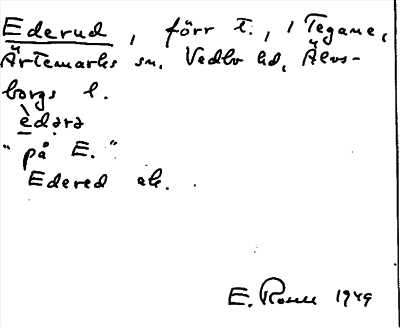 Ederud, förr t., i Tegane,
Ärtemarks sn. Vedbo hd, Älvs-
borgs l.
èdərə
"på E."
Edered ak.
E. 1949